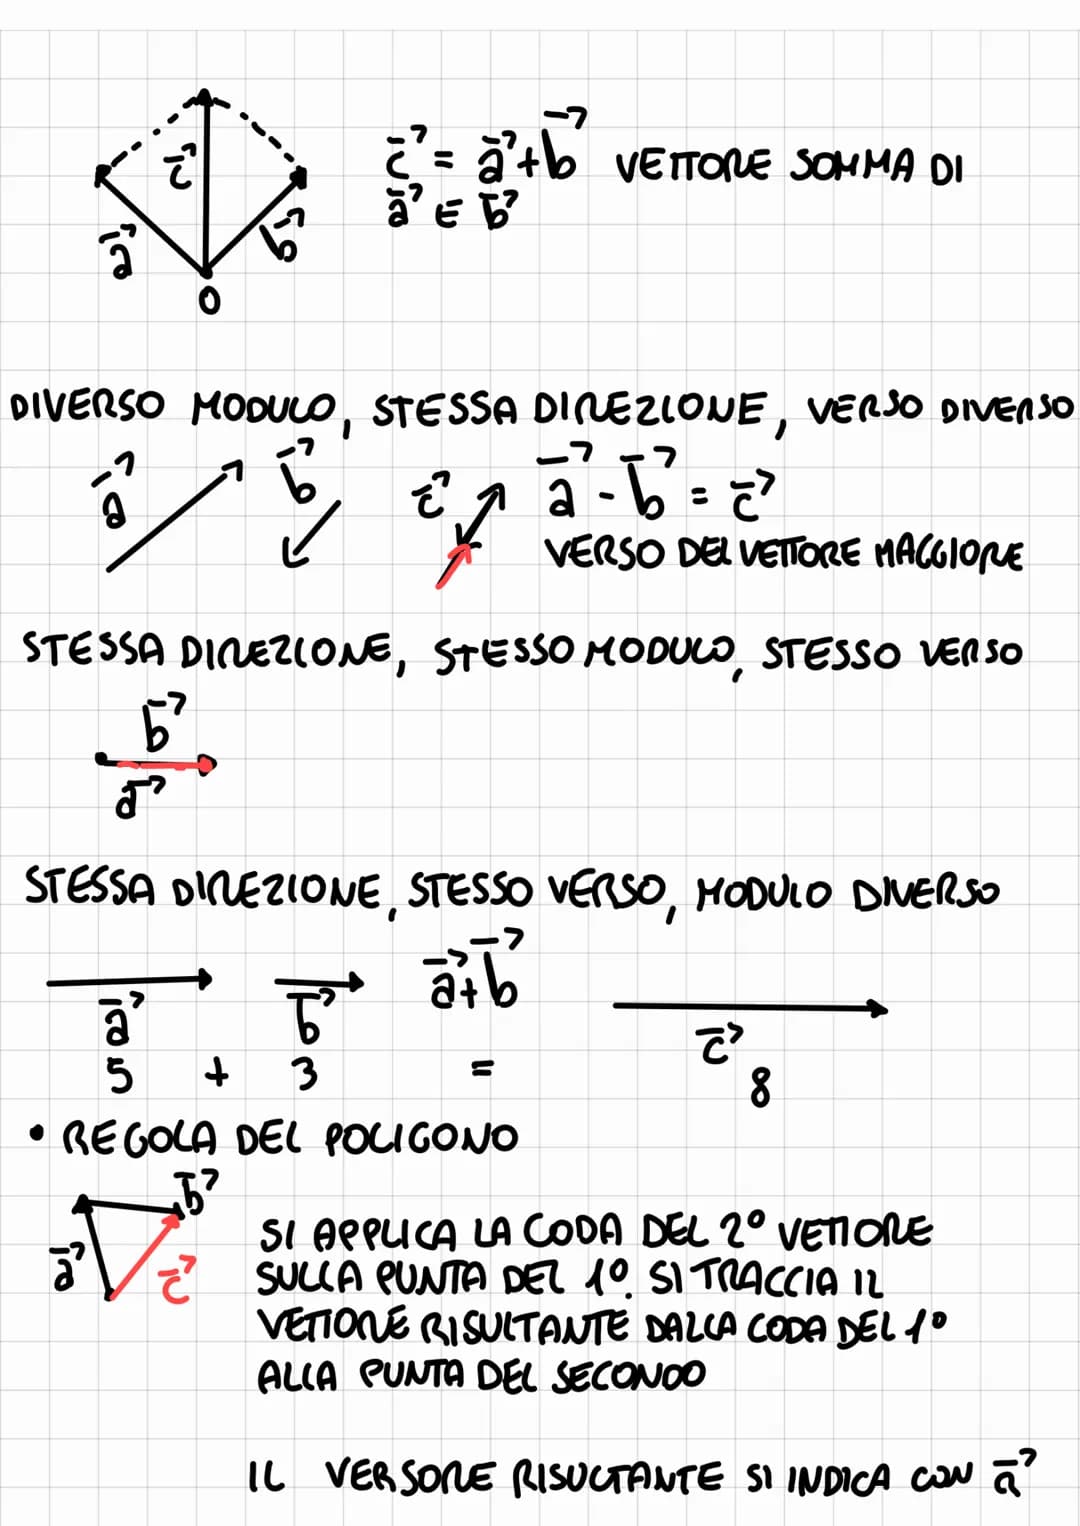 c⃗ = a⃗+b⃗ VETTORE SOMMA DI
a⃗ E b⃗
c⃗
a⃗
b⃗
O
DIVERSO MODULO, STESSA DIREZIONE, VERSO DIVERSO
a⃗ b⃗ c⃗ a⃗ - b⃗ = c⃗
VERSO DEL VETTORE MAGGIORE
STESSA DIREZIONE, STESSO MODULO, STESSO VERSO
b⃗
a⃗
STESSA DIREZIONE, STESSO VERSO, MODULO DIVERSO
a⃗ b⃗ a⃗+b⃗ c⃗
5 + 3 = 8
• REGOLA DEL POLIGONO
b⃗
a⃗ c⃗
SI APPLICA LA CODA DEL 2° VETTORE
SULLA PUNTA DEL 1°. SI TRACCIA IL
VETTORE RISULTANTE DALLA CODA DEL 1°
ALLA PUNTA DEL SECONDO
IL VERSORE RISULTANTE SI INDICA CON a⃗